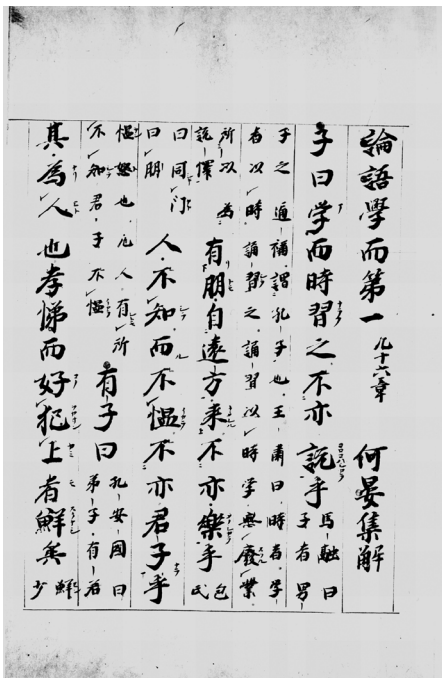 論語學而第一 凡十六章 何晏集解
子曰学而時習之不亦説乎 馬融曰子者男
子之通稱謂孔子也王肅曰時者学
者以時誦習之誦習以時学無廢業
所以為説懌 有朋自遠方来不亦樂乎 包氏
曰同门曰朋 人不知而不愠不亦君子乎
愠怒也凡人有所不知君子不愠 有子曰 孔安国曰弟子有若
其為人也孝悌而好犯上者鮮矣 鮮少